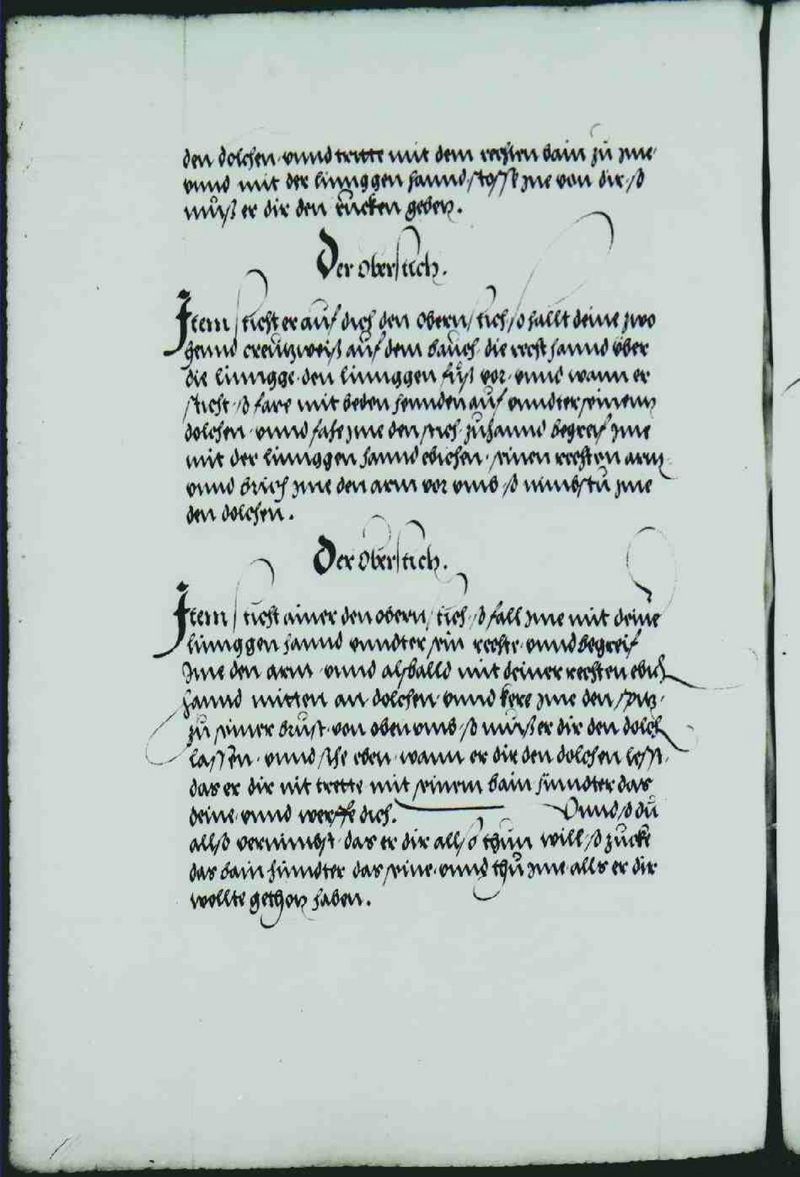 den dolchen · unnd tritt mit dem rechten bain zu jme ·
unnd mit der linnggen hannd stosst jne von dir · so
muͦß er dir den rücken geben.
Der Oberstich.
Item sticht er auf dich den obern stich so hallt deine zwo
hennd creutzweiß auf dem bauch · die recht hannd über
die linngge · den linnggen fuͦß vor · unnd wann er
sticht · so fare mit beden hennden auf unndter seinem
dolchen · unnd fahe jme den stich · zuhannd begreif jme
mit der linnggen hannd ebichen · seinen rechten arm
unnd brich jme den arm vor umb · so nimbstu jme
den dolchen.
Der Oberstich.
Item sticht ainer den obern stich · so fall jme mit deine
linnggen hannd unndter sein rechte · unnd begreif
jme den arm · unnd alsballd mit deiner rechten ebich
hannd mitten an dolchen · unnd kere jme den spitz ·
zu seiner brust · von oben umb · so muͦß er dir den dolch
lassen · unnd sihe eben · wann er dir den dolchen lesst ·
das er dir nit trette mit seinem bain hinndter das
deine · unnd werffe dich. Unnd so du
allso vernimbst · das er dir allso thun will · so zucke
das bain hinndter das seine · unnd thuͦ jme · alls er dir
wollte gethon haben.